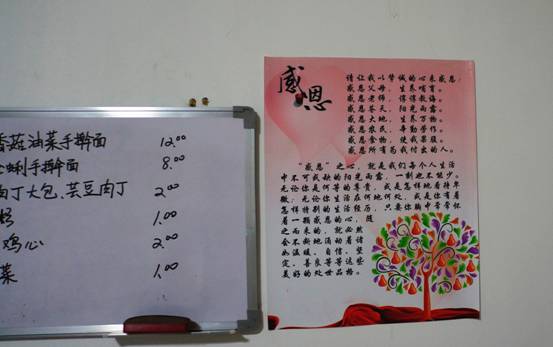 香菇油菜手擀面 12.00
蜊手擀面 8.00
肉丁大包、芸豆肉丁 2.00
1.00
鸡心 2.00
菜 1.00
感恩
请让我以挚诚的心来感恩:
感恩父母，生养哺育。
感恩老师，谆谆教诲。
感恩苍天，阳光雨露。
感恩大地，生养万物。
感恩农民，辛勤劳作。
感恩食物，使我果腹。
感恩所有为我付出的人。
“感恩”之心，就是我们每个人生活
中不可或缺的阳光雨露，一刻也不能少。
无论你是何等的尊贵，或是怎样地看待卑
微；无论你生活在何地何处，或是你有着
怎样特别的生活经历，只要你胸中常常怀
着一颗感恩的心，随
之而来的，就必然
会不断地涌动着诸
如温暖、自信、坚
定、善良等等这些
美好的处世品格。